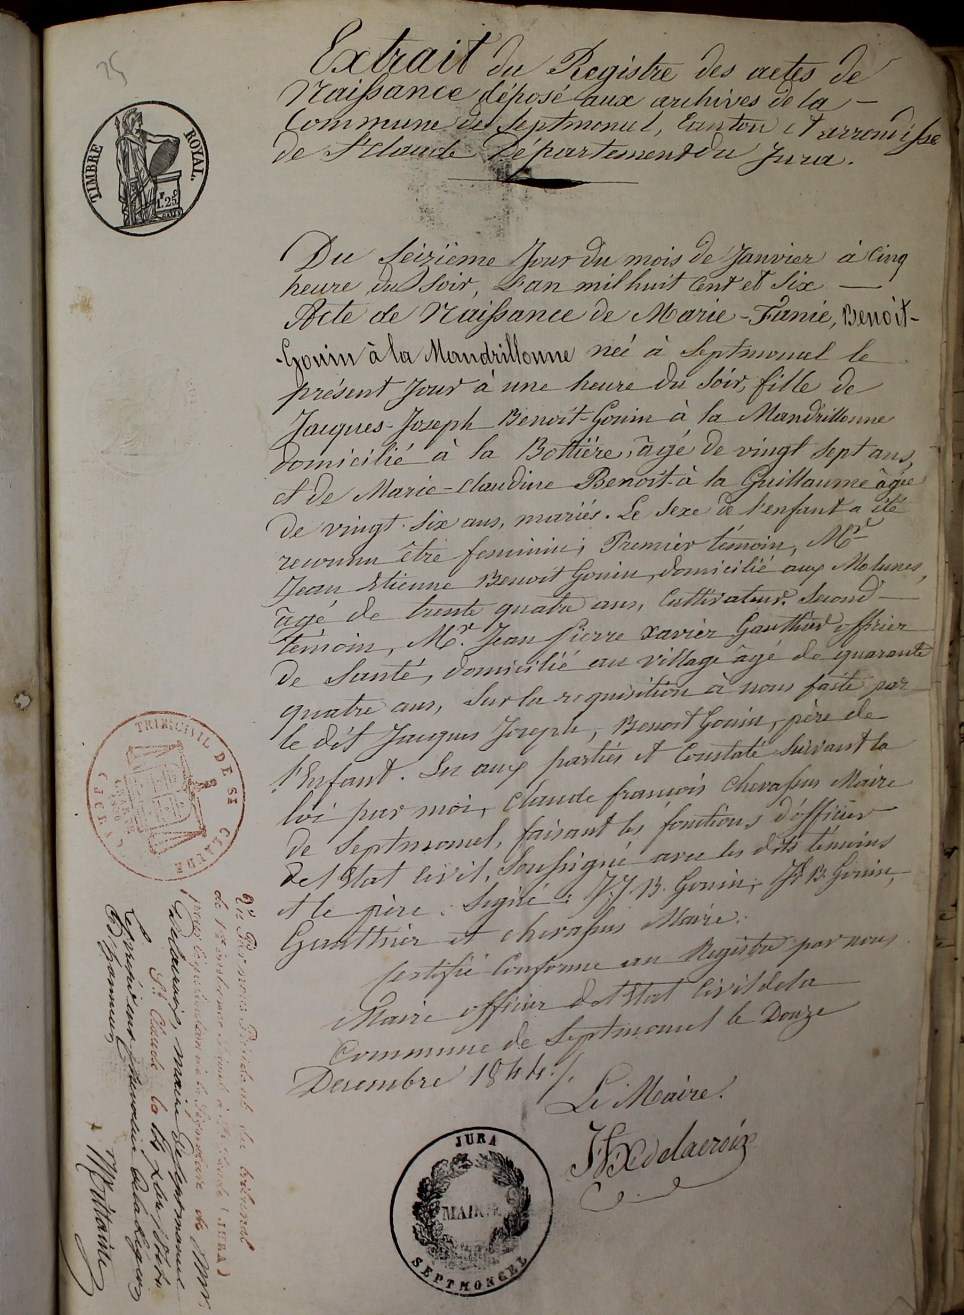 25
TIMBRE ROYAL.
1F. 25C
Extrait du Registre des actes de
Naissance déposé aux archives de la
Commune de Septmoncel, Canton et arrondisse
de St Claude Département du Jura.
Du Seizième Jour du mois de Janvier à Cinq
heure du Soir, L'an mil huit Cent et Six
Acte de Naissance de Marie-Fanie, Benoit-
-Gouin à la Mandrillonne née à Septmoncel le
présent Jour à une heure du Soir, fille de
Jacques-Joseph Benoit-Gouin à la Mandrillonne
domicilié à la Bottière, âgé de vingt sept ans,
et de Marie-Claudine Benoit-à la Guillaume âgée
de vingt-six ans, mariés. Le Sexe de l'enfant a été
reconnu être féminin; Premier témoin, Mr
Jean Etienne Benoit Gouin, domicilié aux Molunes,
âgé de trente quatre ans, Cultivateur. Second
témoin, Mr. Jean Pierre Xavier Gauthier officier
de Santé, domicilié au village âgé de quarante
quatre ans, Sur la réquisition à nous faite par
le dit Jacques Joseph, Benoit Gouin, père de
l'Enfant. Lu aux parties et Constaté Suivant la
loi par moi, Claude françois Chevassus Maire
de Septmoncel, faisant les fonctions d'officier
de l'Etat Civil, Soussigné avec les dits témoins
et le père. Signé: J.J.B. Gouin, Jn B. Gouin,
Gauthier et Chevassus Maire.
Certifié Conforme au Registre par nous
Maire officier de l'Etat Civil de la
Commune de Septmoncel le Douze
Decembre 1844./.
Le Maire.
Delacroix
JURA
MAIRIE
SEPTMONCEL
TRIB. CIVIL DE ST CLAUDE
(JURA)
Vu Par nous Président du tribunal
de 1re instance séant à St Claude (JURA)
pour légalisation de la Signature de Mr
Delacroix, maire de Septmoncel
St Claude le